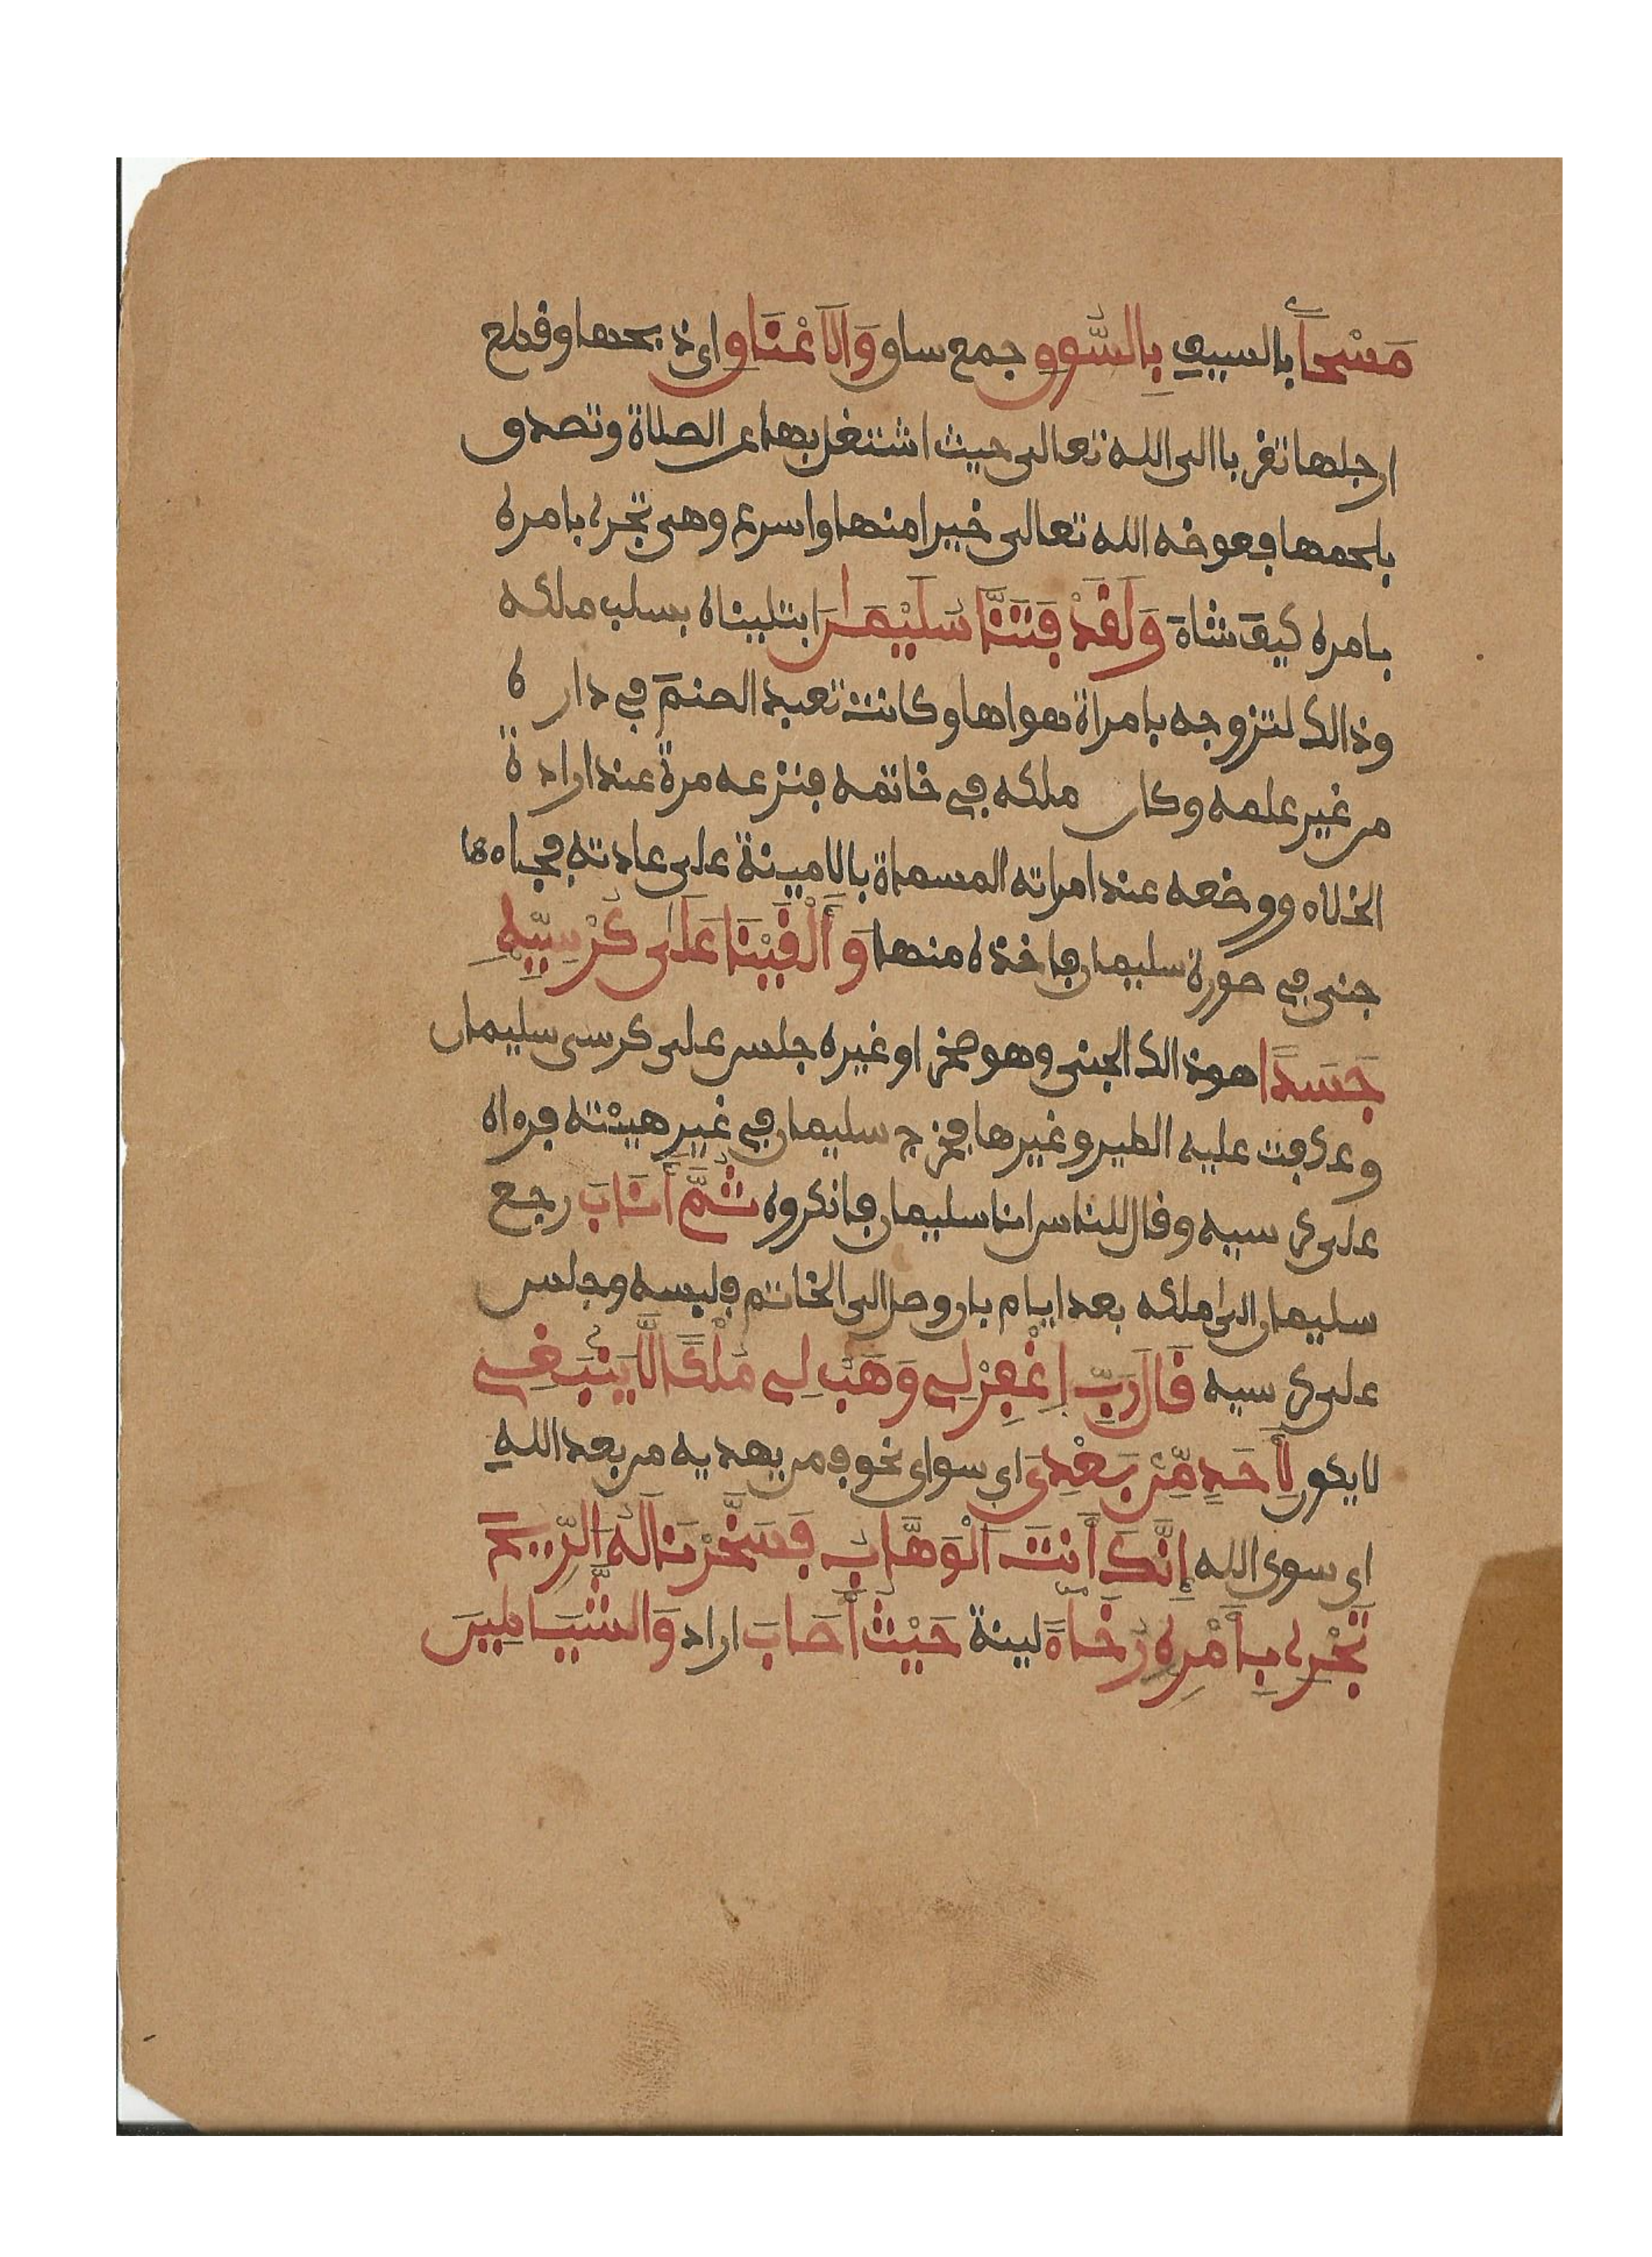 مَسْحاً بالسيف بِالسُّوقِ جمع ساق وَالَاعْنَاقِ اى ذبحها وقطع
ارجلها تقربا الى الله تعالى حيث اشتغل بها عن الصلاة وتصدق
بلحمها فعوضه الله تعالى خيرا منها واسرع وهى تجرى بامره
بامره كيف شاء وَلَقَدْ فَتَنَّا سُلَيْمَٰنَ ابتليناه بسلب ملكه
وذالك لتزوجه بامراة هواها وكانت تعبد الصنم في داره
من غير علمه وكان ملكه في خاتمه فنزعه مرة عند ارادة
الخلاء ووضعه عند امراته المسماة بالامينة على عادته فجاءها
جنى في صورة سليمان فاخذه منها وَأَلْقَيْنَا عَلَىٰ كُرْسِيِّهِ
جَسَدًا هو ذالك الجنى وهو صخر او غيره جلس على كرسى سليمان
وعكفت عليه الطير وغيرها فخرج سليمان في غير هيئته فرءاه
على كرسيه وقال للناس انا سليمان فانكروه ثُمَّ أَنَابَ رجع
سليمان الى ملكه بعد ايام بان وصل الى الخاتم فلبسه وجلس
على كرسيه قَالَ رَبِّ اِغْفِرْ لِى وَهَبْ لِى مُلْكًا لَّا يَنۢبَغِى
لا يكون لِأَحَدٍ مِّنۢ بَعْدِىَ اى سواى نحو فمن يهديه من بعد اللهِ
اى سوى الله إِنَّكَ أَنتَ اَلْوَهَّابُ فَسَخَّرْنَا لَهُ اُلرِّيحَ
تَجْرِى بِأَمْرِهِ رُخَآءً لينة حَيْثُ أَصَابَ اراد وَالشَّيَٰطِينَ